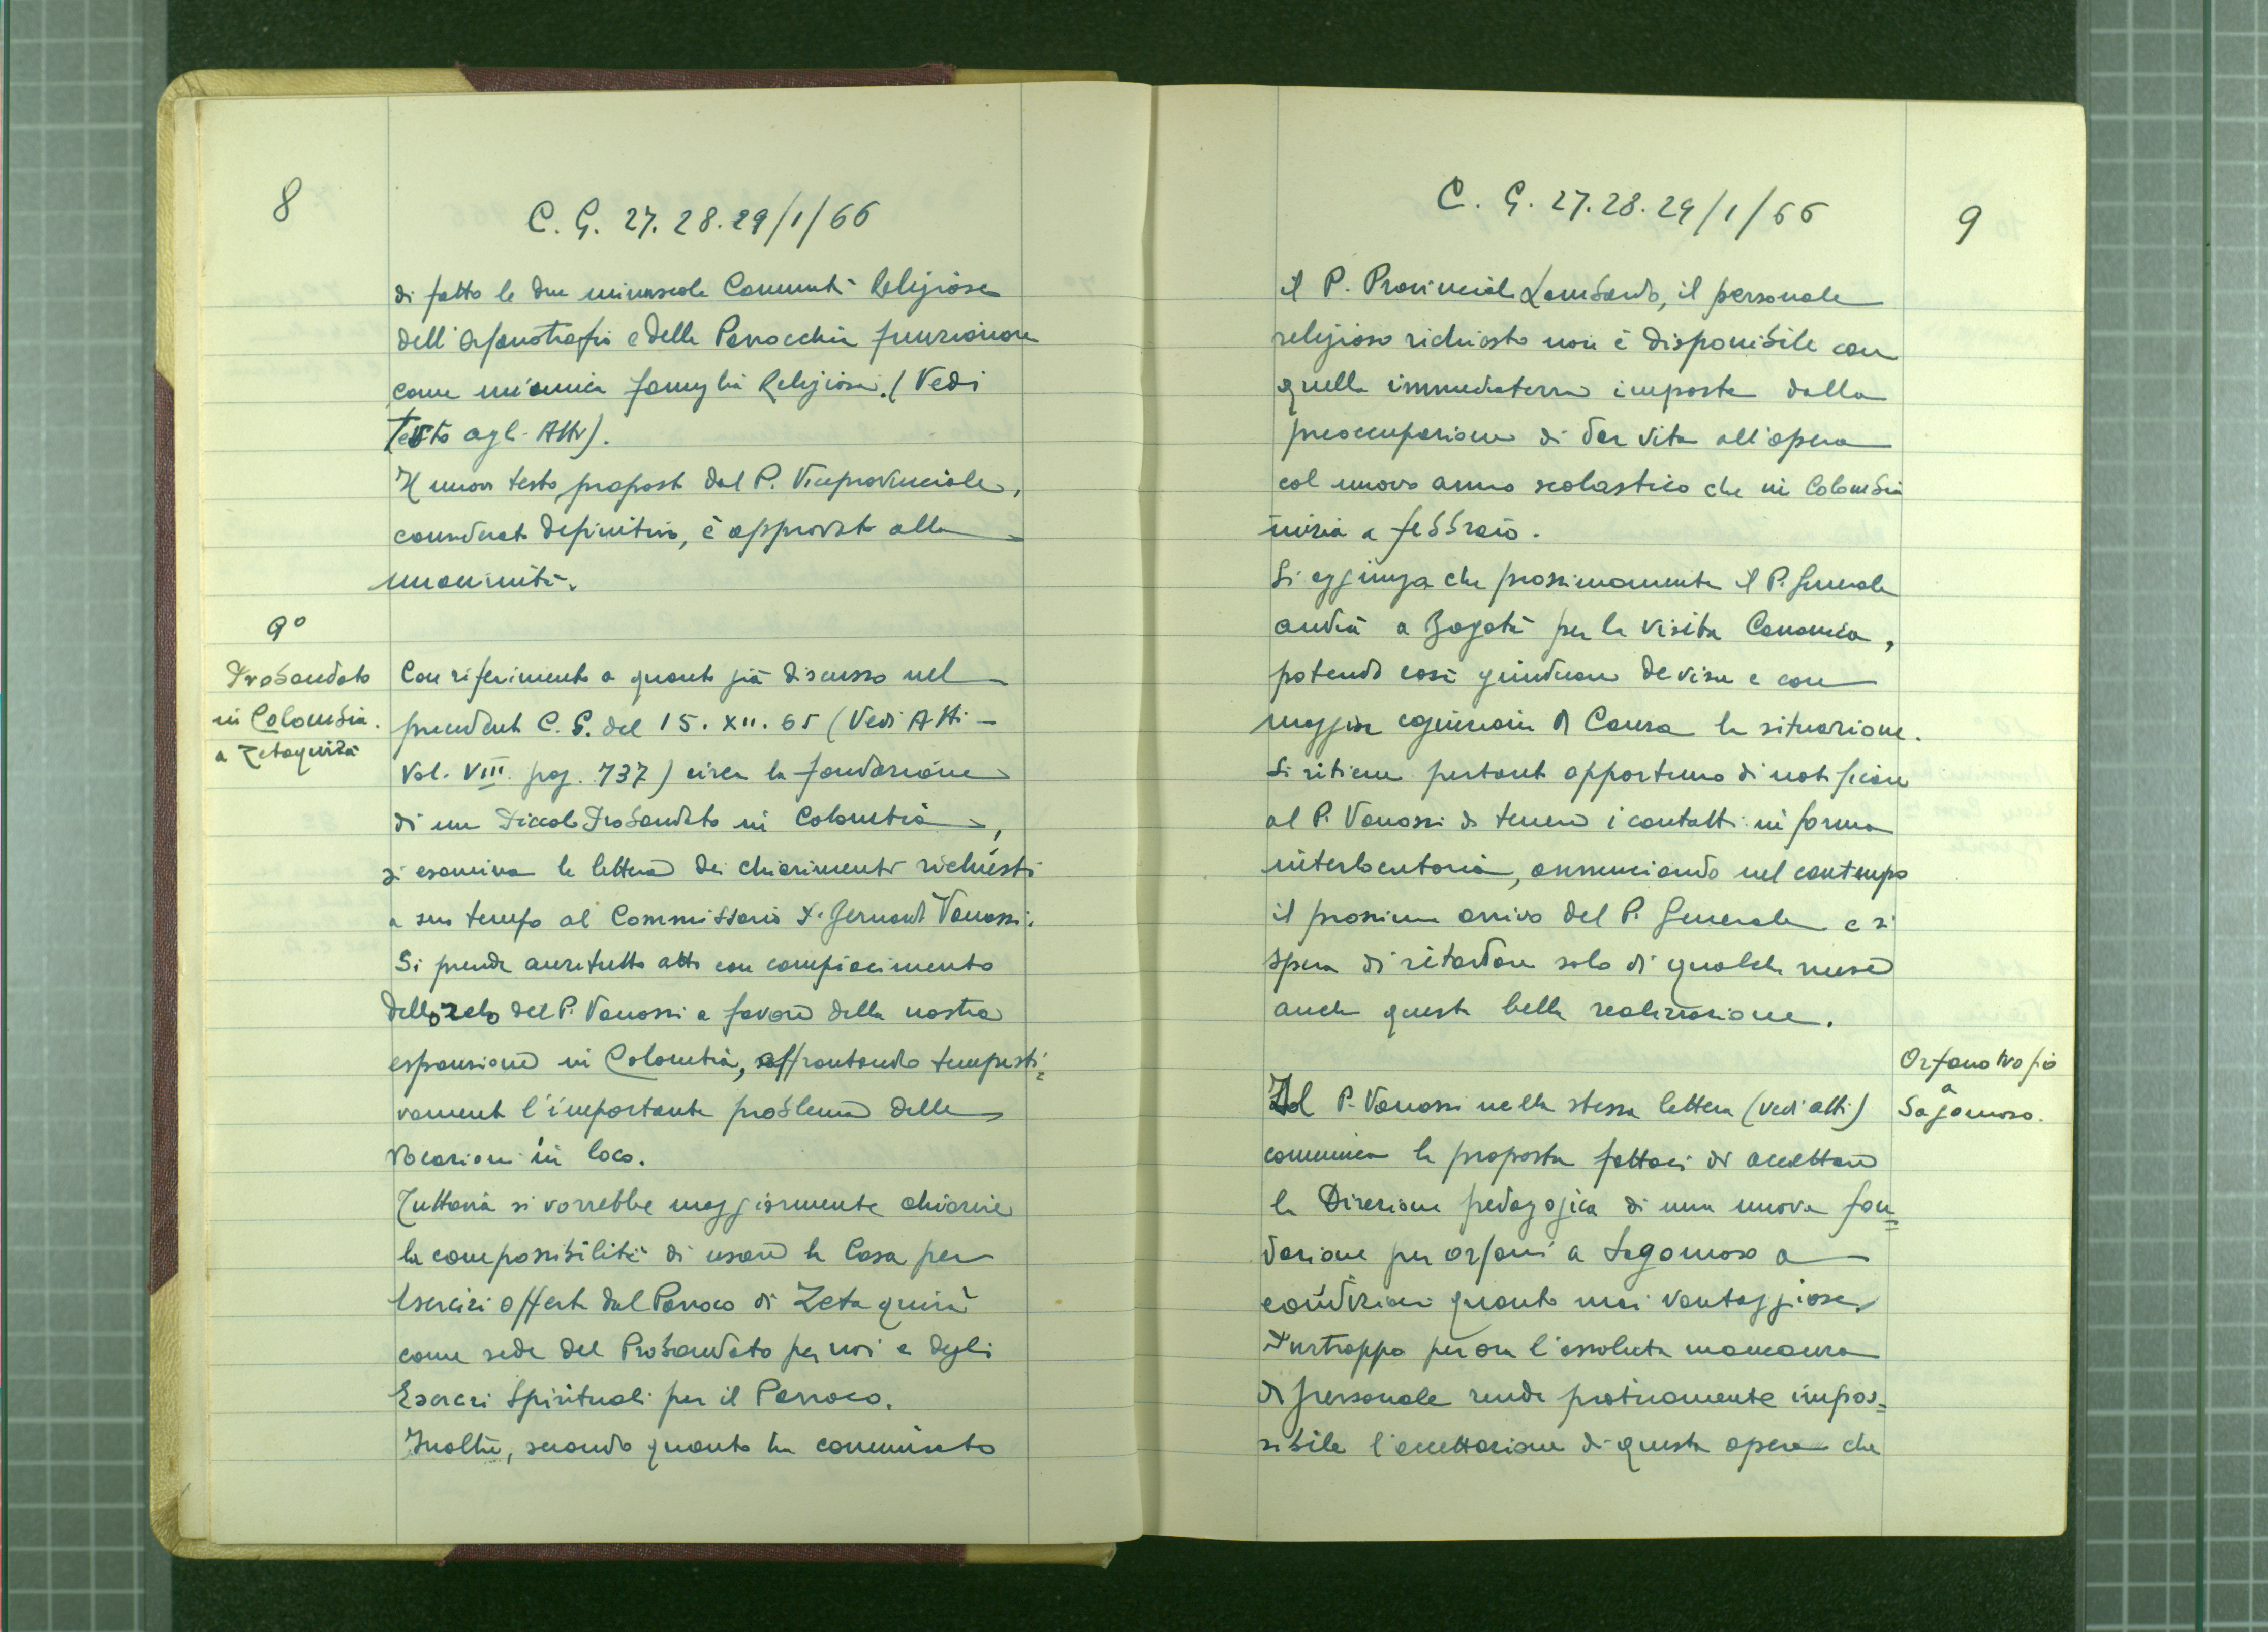 8
C. G. 27. 28. 29/1/66
di fatto le due minuscole Comunità Religiose
dell'Orfanotrofio e della Parrocchia funzionano
come un'unica famiglia Religiosa. (Vedi
Testo agli Atti).
Il nuovo testo proposto dal P. Viceprovinciale,
considerato definitivo, è approvato alla
unanimità.
9°
Probandato
in Colombia.
a Zetaquirà
Con riferimento a quanto già discusso nel
precedente C. G. del 15. XII. 65 (Vedi Atti -
Vol. VIII. pag. 737) circa la fondazione
di un Piccolo Probandato in Colombia,
si esamina la lettera dei chiarimenti richiesti
a suo tempo al Commissario P. Bernardo Vanossi.
Si prende anzitutto atto con compiacimento
dello zelo del P. Vanossi a favore della nostra
espansione in Colombia, affrontando tempesti=
vamente l'importante problema delle
vocazioni in loco.
Tuttavia si vorrebbe maggiormente chiarire
la compossibilità di usare la Casa per
Esercizi offerta dal Parroco di Zetaquirà
come sede del Probandato per noi e degli
Esercizi Spirituali per il Parroco.
Inoltre, secondo quanto ha comunicato
C. G. 27. 28. 29/1/66
9
il P. Provinciale Lombardo, il personale
religioso richiesto non è disponibile con
quella immediatezza imposta dalla
preoccupazione di dar vita all'opera
col nuovo anno scolastico che in Colombia
inizia a febbraio.
Si aggiunga che prossimamente il P. Generale
andrà a Bogotà per la visita Canonica,
potendo così giudicare de visu e con
maggior cognizione di Causa la situazione.
Si ritiene pertanto opportuno di notificare
al P. Vanossi di tenere i contatti in forma
interlocutoria, annunciando nel contempo
il prossimo arrivo del P. Generale e si
spera di ritardare solo di qualche mese
anche questa bella realizzazione.
Orfanotrofio
a
Sogamoso.
Il P. Vanossi nella stessa lettera (vedi atti)
comunica la proposta fattaci di accettare
la Direzione pedagogica di una nuova fon=
dazione per orfani a Sogamoso a
condizioni quanto mai vantaggiose.
Purtroppo per ora l'assoluta mancanza
di personale rende praticamente impos=
sibile l'accettazione di questa opera che